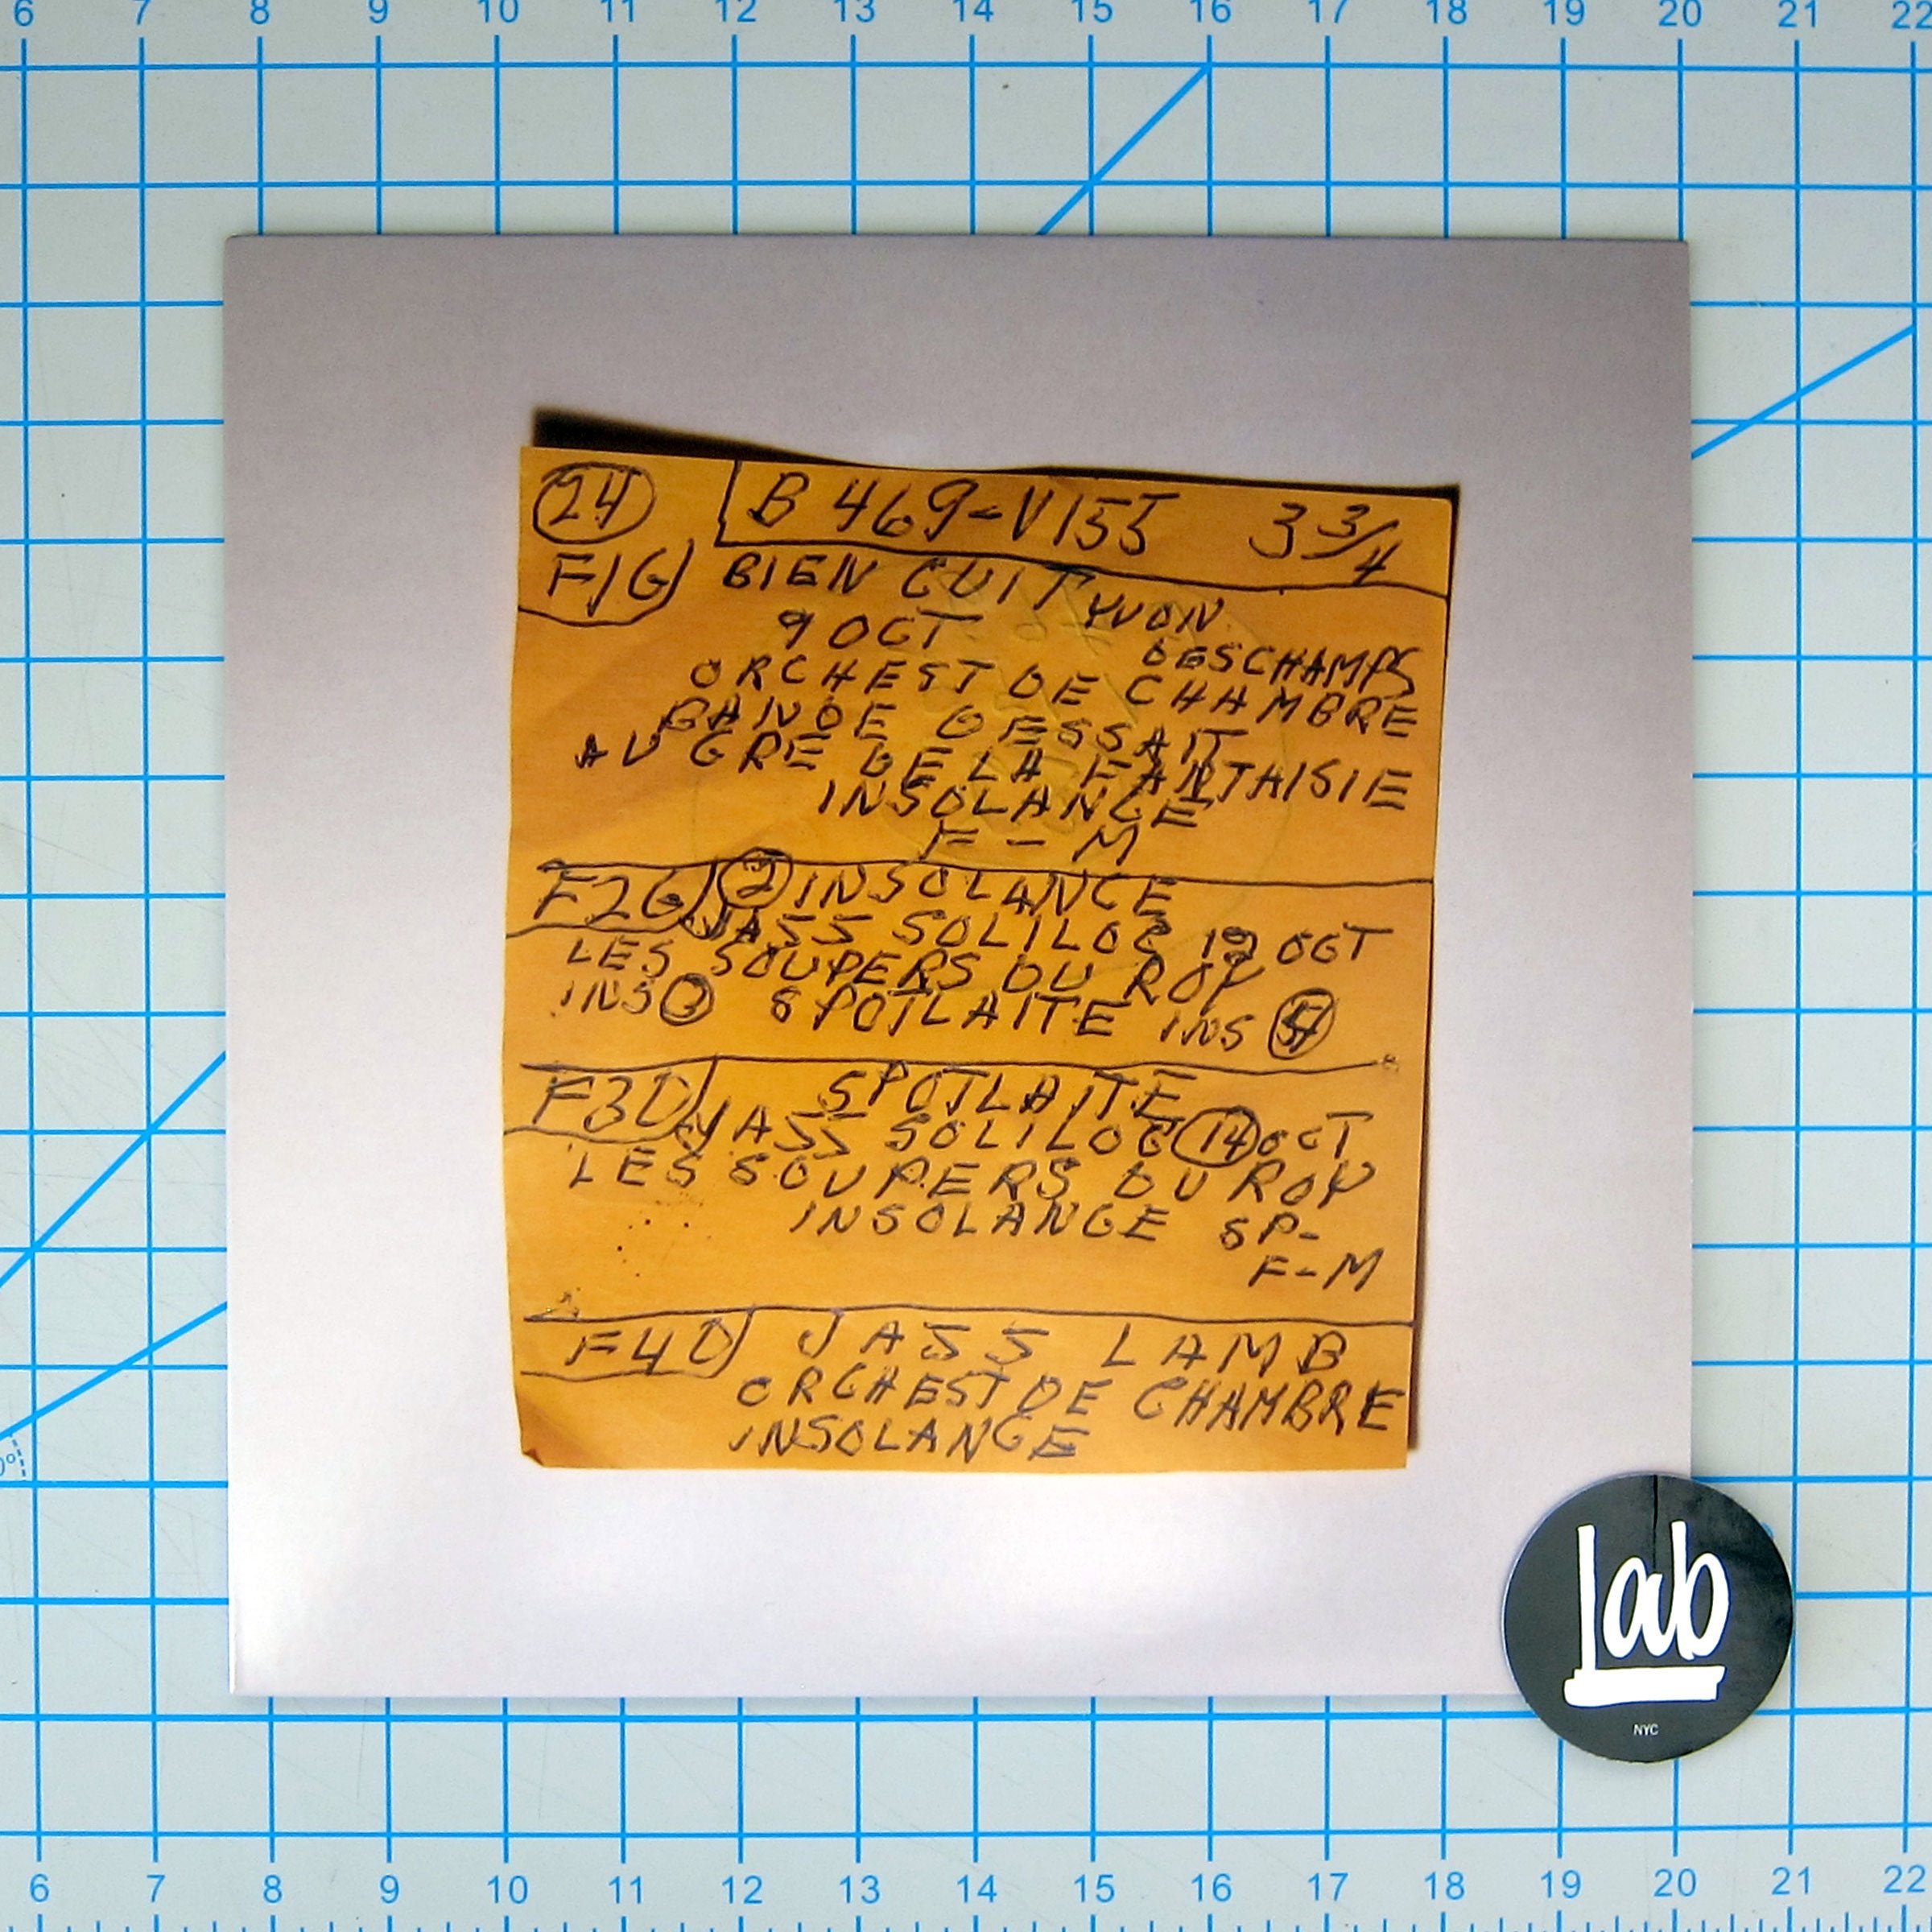 6 7 8 9 10 11 12 13 14 15 16 17 18 19 20 21 22
24 B 469-V155 3 3/4
F1G BIEN CUIT YVON
9 OCT DESCHAMPS
ORCHEST DE CHAMBRE
BANDE DESSAIT
AU GRE DE LA FANTAISIE
INSOLANCE
F-M
F2G 2 INSOLANCE
JASS SOLILOC 12 OCT
LES SOUPERS DU ROY
INS SPOTLAITE INS
F3D SPOTLAITE
JASS SOLILOC 14 OCT
LES SOUPERS DU ROY
INSOLANCE SP-
F-M
F4D JASS LAMB
ORCHEST DE CHAMBRE
INSOLANCE
Lab
NYC
6 7 8 9 10 11 12 13 14 15 16 17 18 19 20 21 22